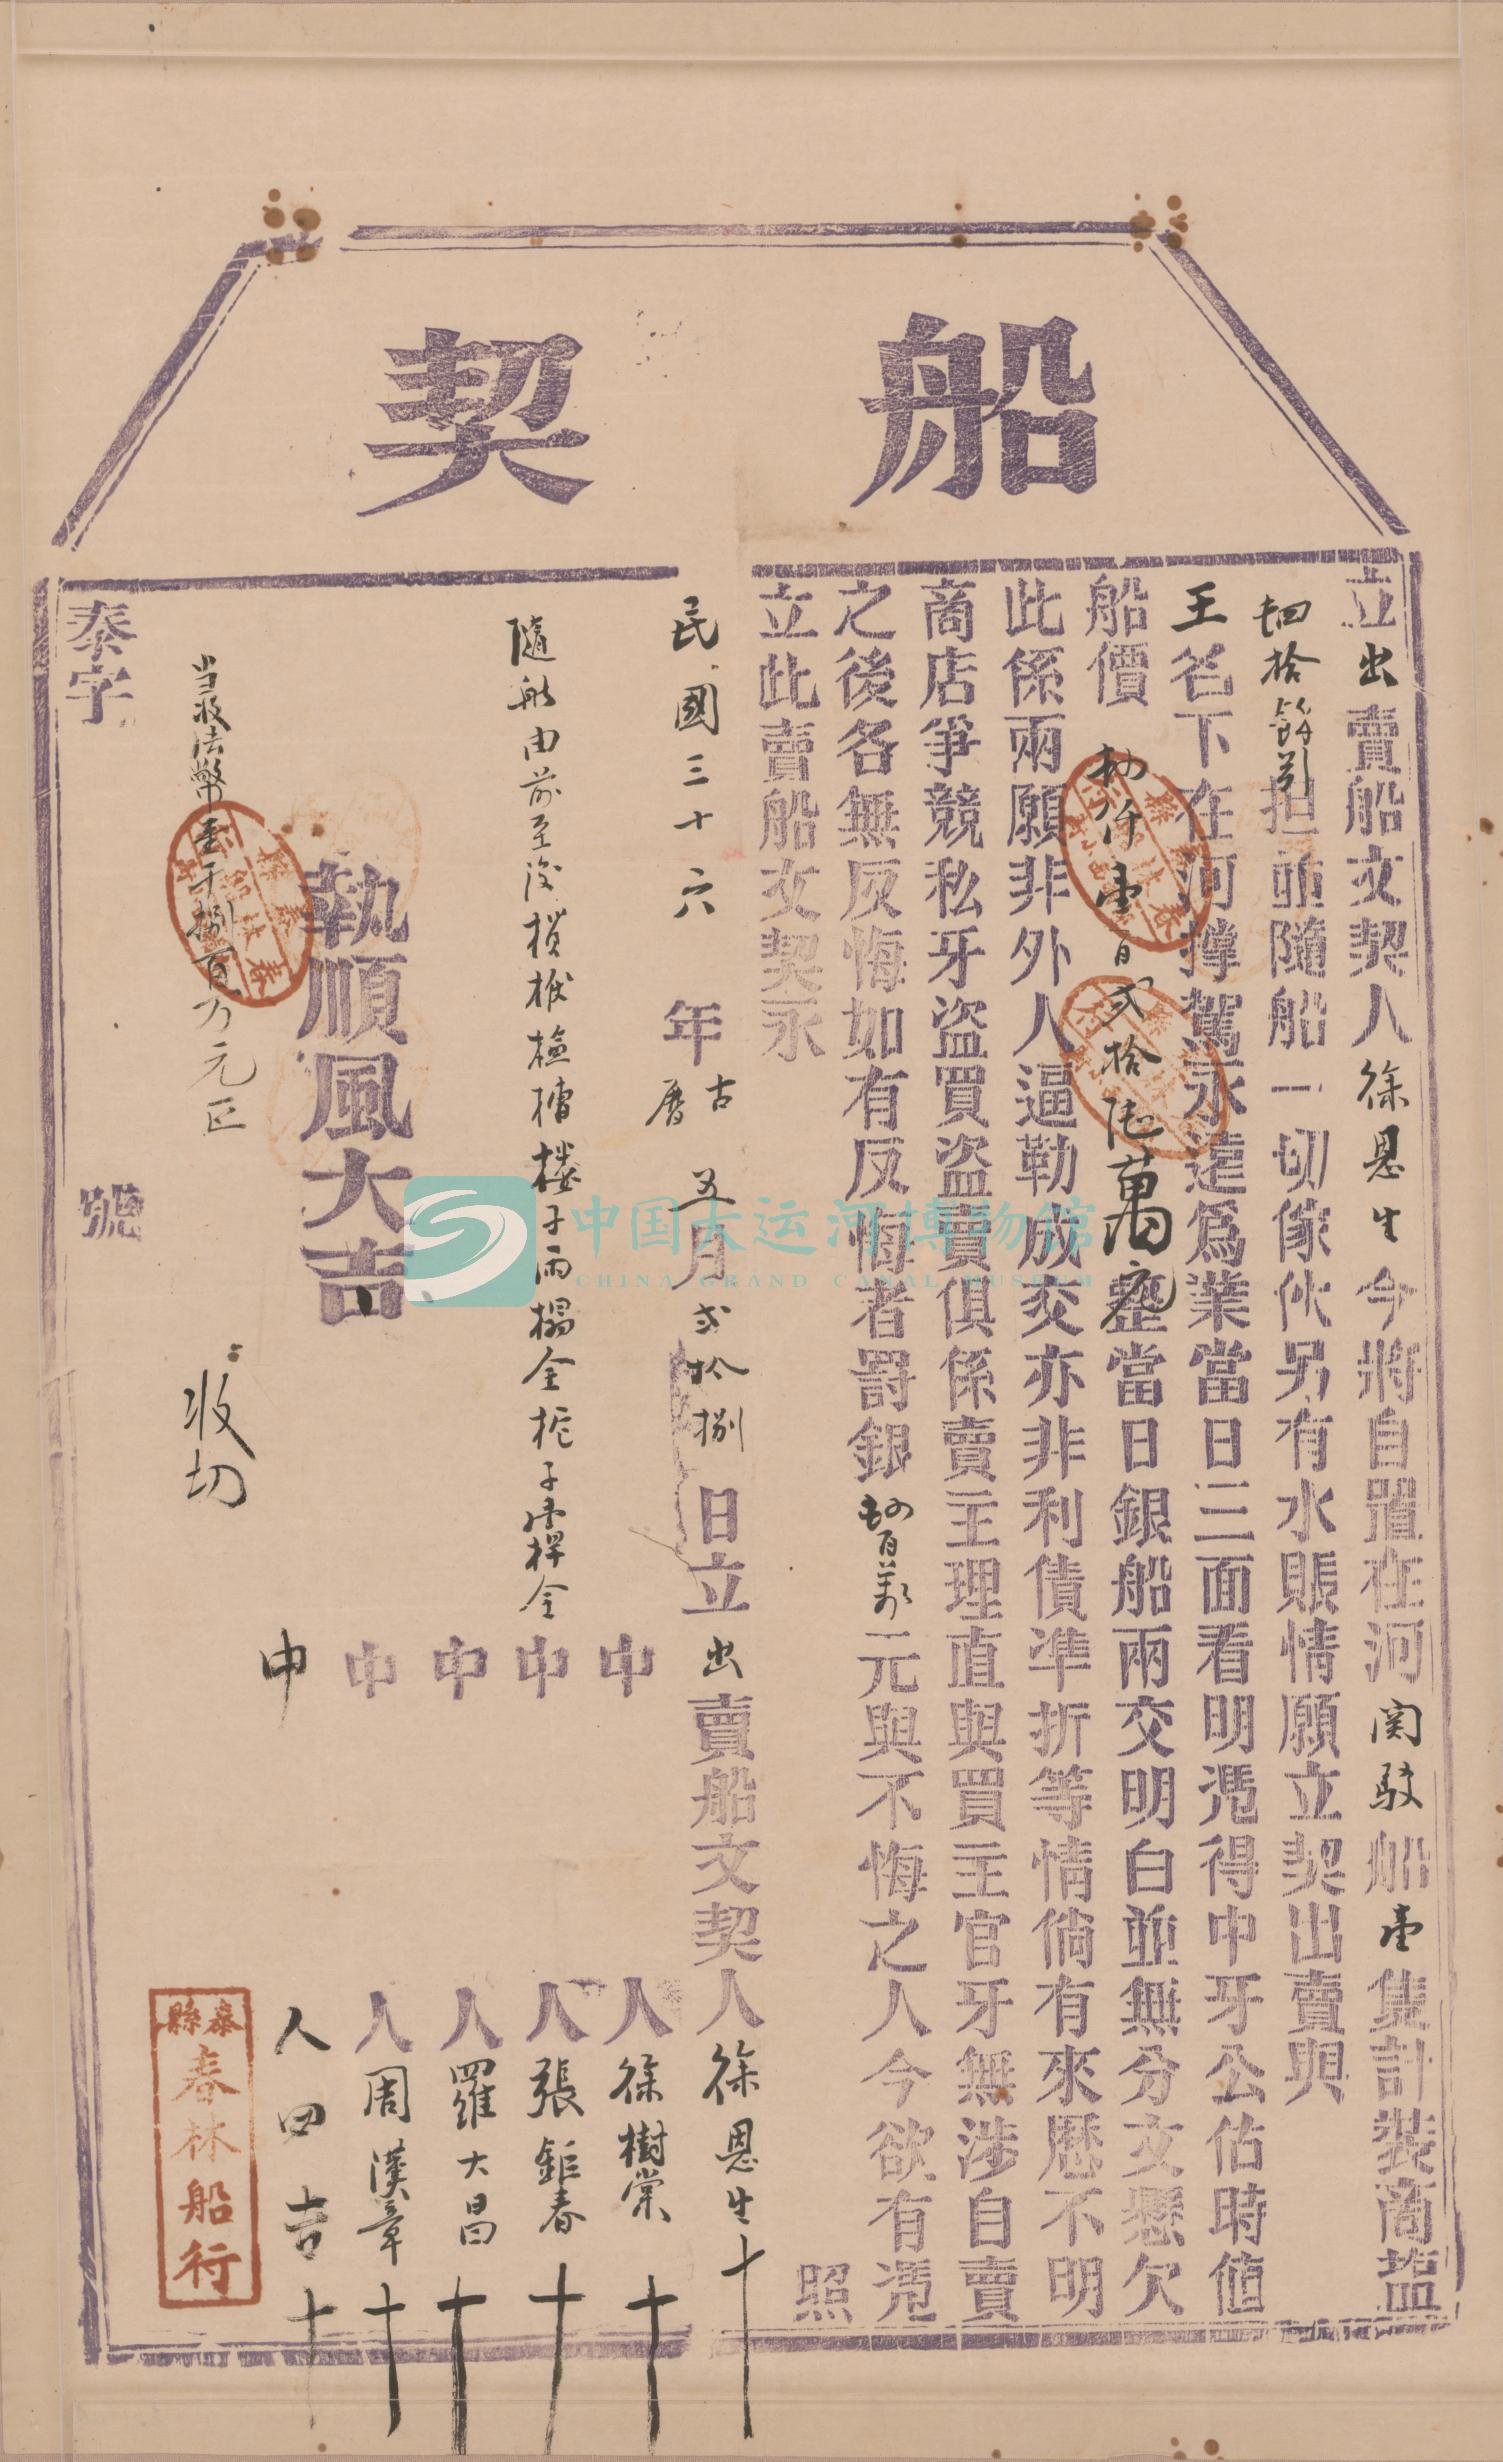 船契
立出賣船文契人徐恩生今將自置在河関駁船壹隻計裝商塩
拾 担並隨船一切傢伙另有水賬情願立契出賣與
王名下在河撑駕永遠為業當日三面看明凴得中牙公估時值
船價 仟壹百弍拾陆萬元整當日銀船兩交明白並無分文懸欠
此係兩願非外人逼勒成交亦非利債準折等情倘有來歷不明
商店爭競私牙盜買盜賣俱係賣主理直與買主官牙無涉自賣
之後各無反悔如有反悔者罸銀 百萬元與不悔之人今欲有凴
立此賣船文契永 照
民國三十六年古曆五月弍拾捌日立出賣船文契人徐恩生十
中人徐樹棠十
隨船由前至後 槽樓子兩榻全柁子 全
中人張鉅春十
中人羅大昌十
中人周漢章十
執順風大吉
中人田吉十
当收法幣壹千捌百万元正
收切
泰字 號
泰縣
春林船行
中国大运河博物馆
CHINA GRAND CANAL MUSEUM